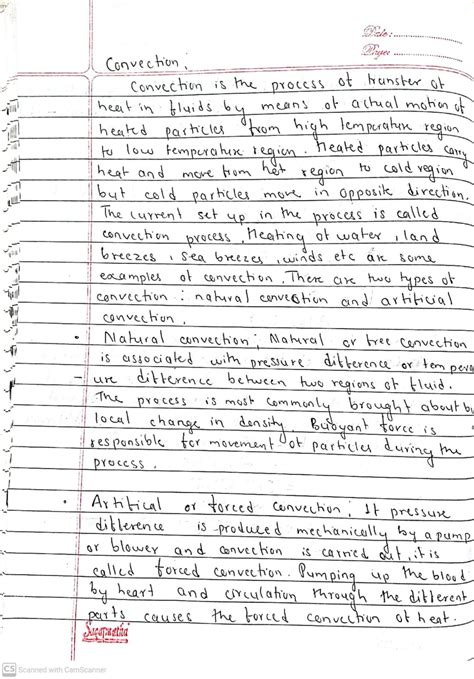 Date:
Page:
Convection:
Convection is the process of transfer of
heat in fluids by means of actual motion of
heated particles from high temperature region
to low temperature region. Heated particles carry
heat and move from hot region to cold region
but cold particles move in opposite direction.
The current set up in the process is called
convection process, Heating of water, land
breezes, sea breezes, winds etc are some
examples of convection, There are two types of
convection: natural convection and artificial
convection.
• Natural convection; Natural or free convection
is associated with pressure difference or tempera
- ure difference between two regions of fluid.
The process is most commonly brought about by
local change in density, Buoyant force is
responsible for movement of particles during the
process.
• Artifical or forced convection; If pressure
difference is produced mechanically by a pump
or blower and convection is carried out, it is
called forced convection. Pumping up the blood
by heart and circulation through the different
parts causes the forced convection of heat.
CS Scanned with CamScanner